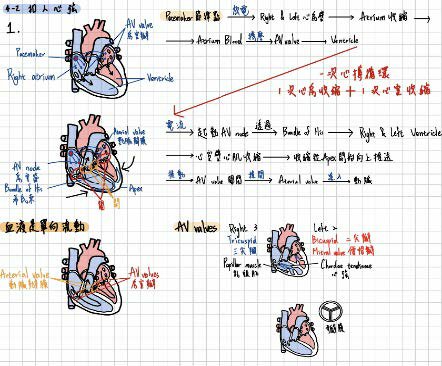 4-2 初人心臟
1.
Pacemaker 節律點 放電 Right & Left 心房 Atrium 收縮
Atrium Blood 擠壓 AV valve Ventricle
AV valve
房室瓣
Pacemaker
Right atrium
Ventricle
一次心搏循環
1次心房收縮 + 1次心室收縮
電流 起動 AV node 透過 Bundle of His Right & Left Ventricle
心室 心肌收縮 收縮從 Apex 開始向上推送
推動 AV valve 關閉 推開 Arterial valve 進入 動脈
Arterial valve
動脈瓣膜
AV node
房室結
Bundle of His
希氏束
Apex
血液是單向流動
Arterial valve
動脈瓣膜
AV valves
房室瓣
AV valves
Right 3
Tricuspid
三尖瓣
Papillar muscle
乳頭肌
Left 2
Bicuspid 二尖瓣
Mitral valve 僧帽瓣
Chordae tendineae